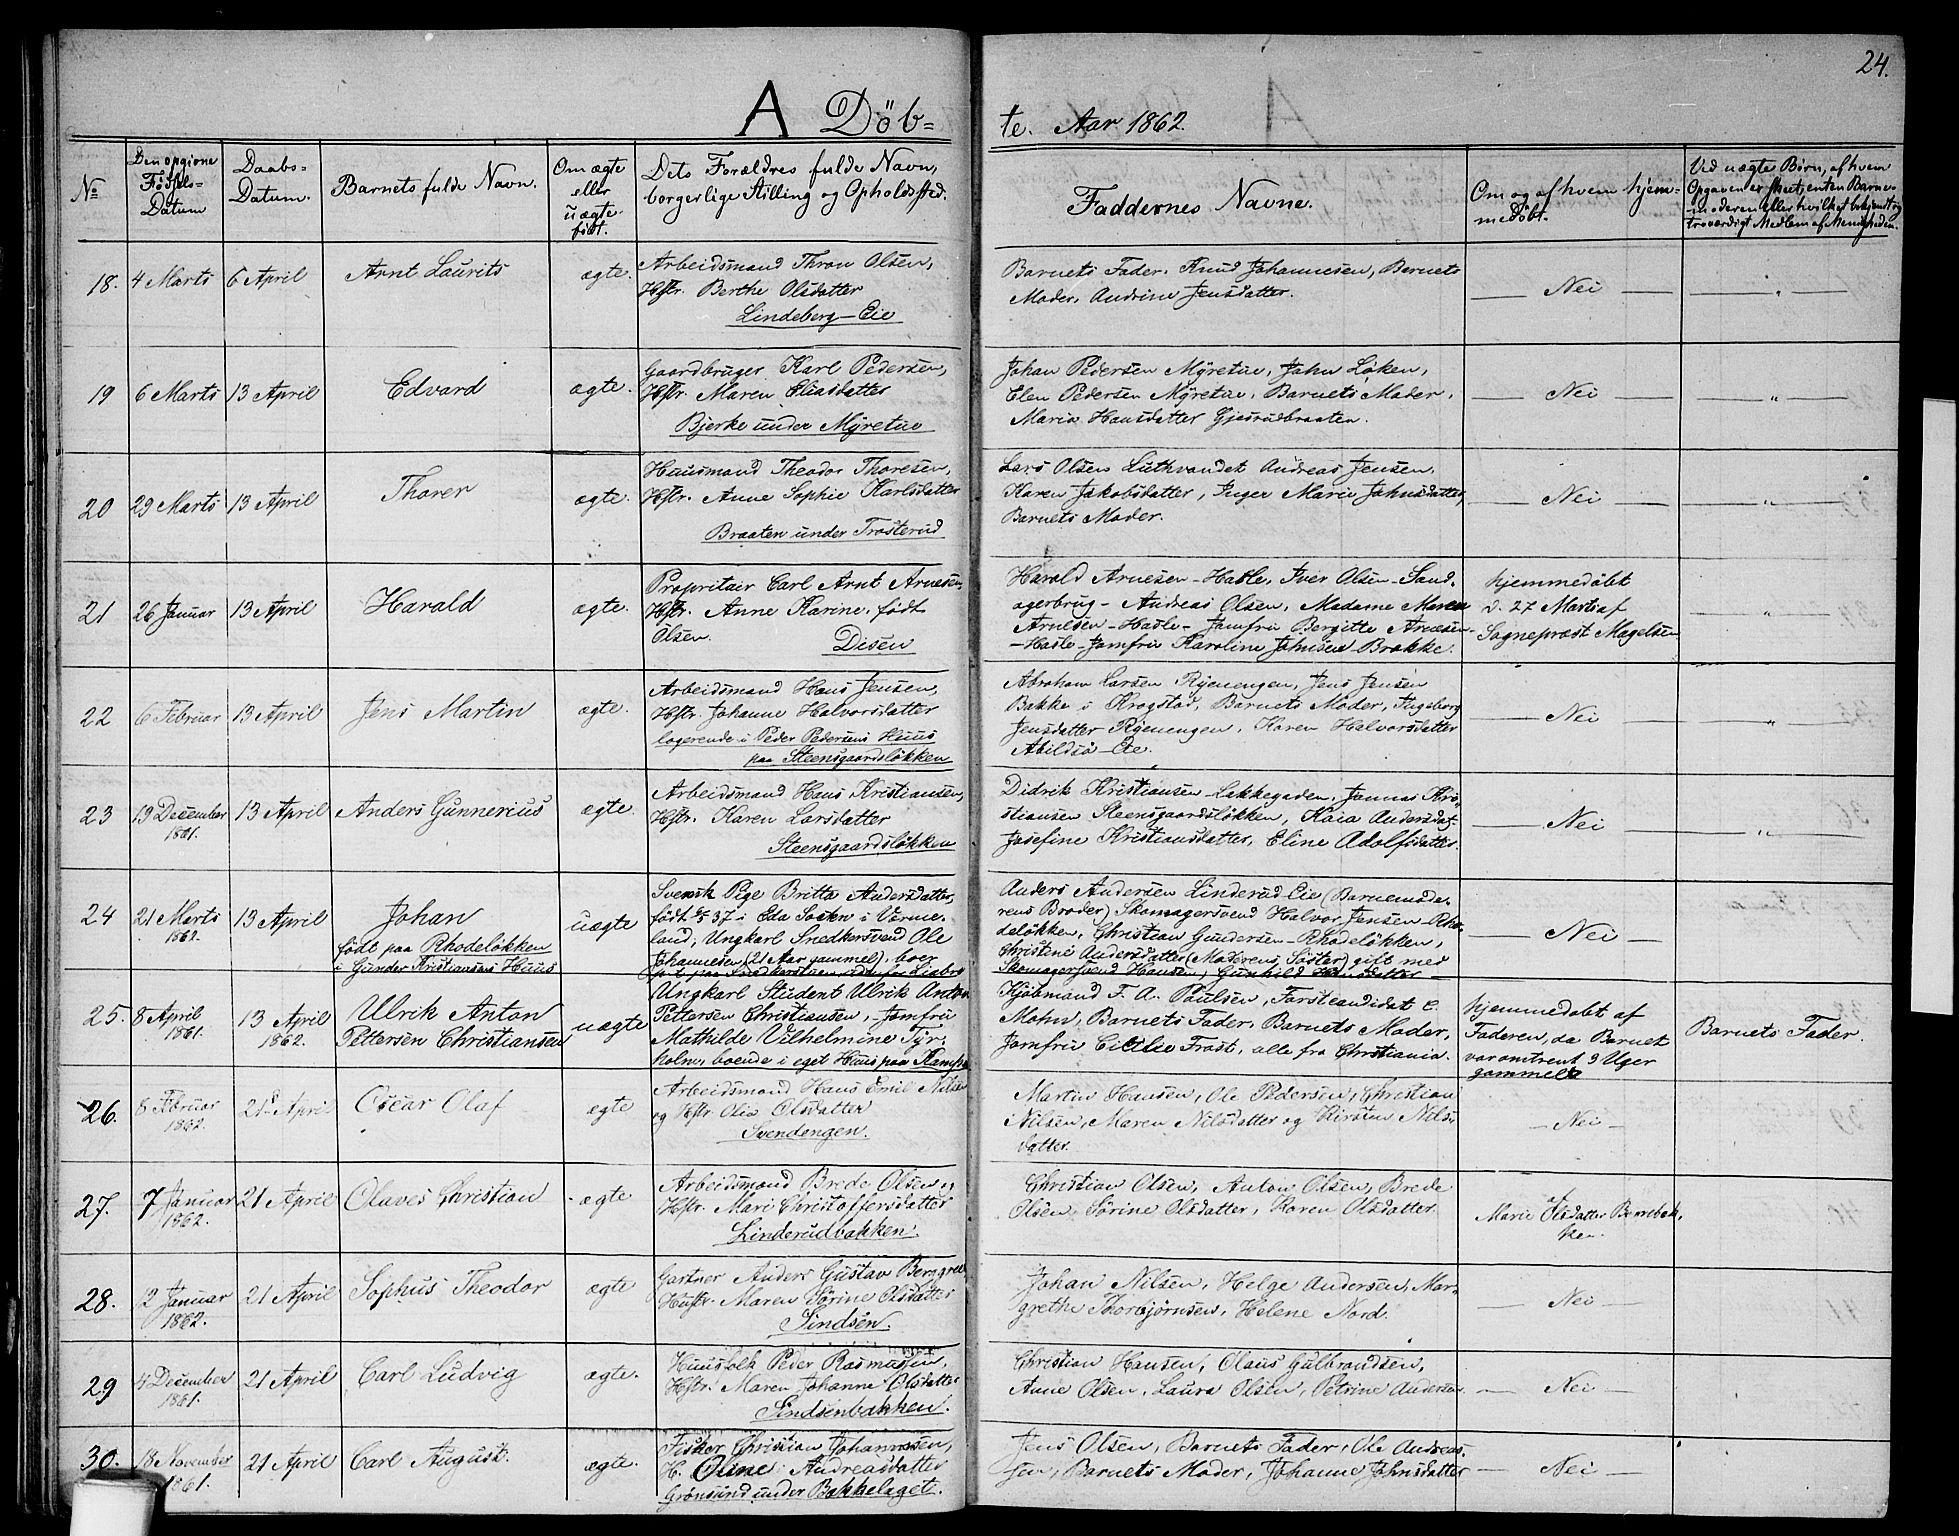 24.
A Döb=
te. Aar 1862.
No
Den opgivne
Födsels-
Datum
Daabs-
Datum.
Barnets fulde Navn.
Om ægte
eller
uægte
født.
Dets Forældres fulde Navn,
borgerlige Stilling og Opholdssted.
Faddernes Navne.
Om og af hvem hjem=
medöbt.
Ved uægte Børn, af hvem
Opgaven er skeet, enten Barne-
moderen eller hvilket bekjendt og
troværdigt Medlem af Menigheden.
18. 4 Marts 6 April Arnt Laurits ægte.
Arbeidsmand Thron Olsen,
Hstr. Berthe Olsdatter
Lindeberg-Eie
Barnets Fader. Knud Johannesen, Barnets
Moder. Andrine Jensdatter.
Nei
19 6 Marts 13 April Edvard ægte.
Gaardbruger Karl Pedersen,
Hstr. Maren Eliasdatter
Bjerke under Myretue
Johan Pedersen Myretue, John Löken,
Elen Pedersen Myretue, Barnets Moder,
Maria Hansdatter Gjesrudbraaten.
Nei
20 29 Marts 13 April Thorer ægte.
Huusmand Theodor Thoresen,
Hstr. Anne Sophie Karlsdatter
Braaten under Trosterud
Lars Olsen Luthvandet Andreas Jensen,
Karen Jakobsdatter, Inger Marie Johnsdatter,
Barnets Moder.
Nei
21 26 Januar 13 April Harald ægte.
Propritair Carl Arnt Arnesen,
Hstr. Anne Karine, født
Olsen.
Disen
Harald Arnesen-Hasle, Iver Olsen-Sand-
agerbrug- Andreas Olsen, Madame Maren
Arnesen-Hasle- Jomfru Bergitte Arnesen-
-Hasle-Jomfru Karoline Johnsen Brække.
hjemmedöbt
d. 27 Marts af
Sognepræst Magelsen
22 6 Februar 13 April Jens Martin ægte.
Arbeidsmand Hans Jensen,
Hstr. Johanne Halvorsdatter
logerende i Peder Pedersens Huus
paa Steensgaardslökken
Abraham Larsen Ryenengen, Jens Jensen
Bakke i Krogstad, Barnets Moder, Ingeborg
Jensdatter Ryenengen, Karen Halvorsdatter
Abildsö-Eie.
Nei
23 19 December
1861. 13 April Anders Gunnerius ægte.
Arbeidsmand Hans Kristiansen,
Hstr. Karen Larsdatter
Steensgaardslökken
Didrik Kristiansen-Lakkegaden, Jonnas Kri-
stiansen Steensgaardslökken, Kaia Andersdat-
Josefine Kristiansdatter, Eline Adolfsdatter.
Nei
24 21 Marts
1862. 13 April Johan
født paa Rhodelökken
i Gunder Kristiansens Huus
uægte
Svensk Pige Britta Andersdatter,
født 37 i Eda Sockn i Värme-
land, Ungkarl Snedkersvend Ole
Johannesen (21 Aar gammel), boer
Anders Andersen Linderud-Eie (Barnemode-
rens Broder) Skomagersvend Halvor Jensen-Rho-
delökken, Christian Gundersen-Rhodelökken,
Christine Andersdatter (Moderens Söster) gift med
Skomagersvend Hansen, Gunhild Hansdatter
Nei
25. 8 April
1861. 13 April
1862. Ulrik Anton
Pettersen Christiansen
uægte
Ungkarl Student Ulrik Anton
Pettersen Christiansen, -Jomfru
Mathilde Vilhelmine Tyr-
holm, boende i eget Huus paa Kampen
Kjøbmand F. A. Paulsen, Forstcandidat C.
Mohn, Barnets Fader, Barnets Moder,
Jomfru Cicilie Frost, alle fra Christiania.
hjemmedøbt af
Faderen, da Barnet
var omtrent 3 Uger
gammelt
Barnets Fader.
26. 8 Februar
1862. 21 April Oscar Olaf ægte
Arbeidsmand Hans Emil Nilsen
og Hstr Olia Olsdatter
Svendengen.
Martin Hansen, Ole Pedersen, Christian
Nilsen, Maren Nilsdatter og Kirsten Nils-
datter.
Nei
27. 7 Januar
1862. 21 April Olaves Christian ægte
Arbeidsmand Brede Olsen og
Hstr. Mari Christoffersdatter
Linderudbakken.
Christian Olsen, Anton Olsen, Brede
Olsen, Sörine Olsdatter, Karen Olsdatter
Marie Olsdatter
28. 12 Januar
1862. 21 April Sophus Theodor ægte
Gartner Anders Gustav Berggren
Hustr. Maren Sörine Olsdatter
Sindsen.
Johan Nilsen, Helge Andersen, Mar-
grethe Thorbjørnsen, Helene Nord.
Nei
29 4 December
1861. 21 April Carl Ludvig ægte.
Huusfolk Peder Rasmussen,
Hstr. Maren Johanne Olsdatter
Sindsenbakken.
Christian Hansen, Olaus Gulbrandsen,
Anne Olsen, Laura Olsen, Petrine Andersen
Nei
30. 18 November
1861. 21 April Carl August. ægte.
Fisker Christian Johannesen,
H. Oline Andreasdatter
Grönsund under Bakkelaget.
Jens Olsen, Barnets Fader, Ole Andreas-
sen, Barnets Moder, Johanne Johnsdatter
Nei